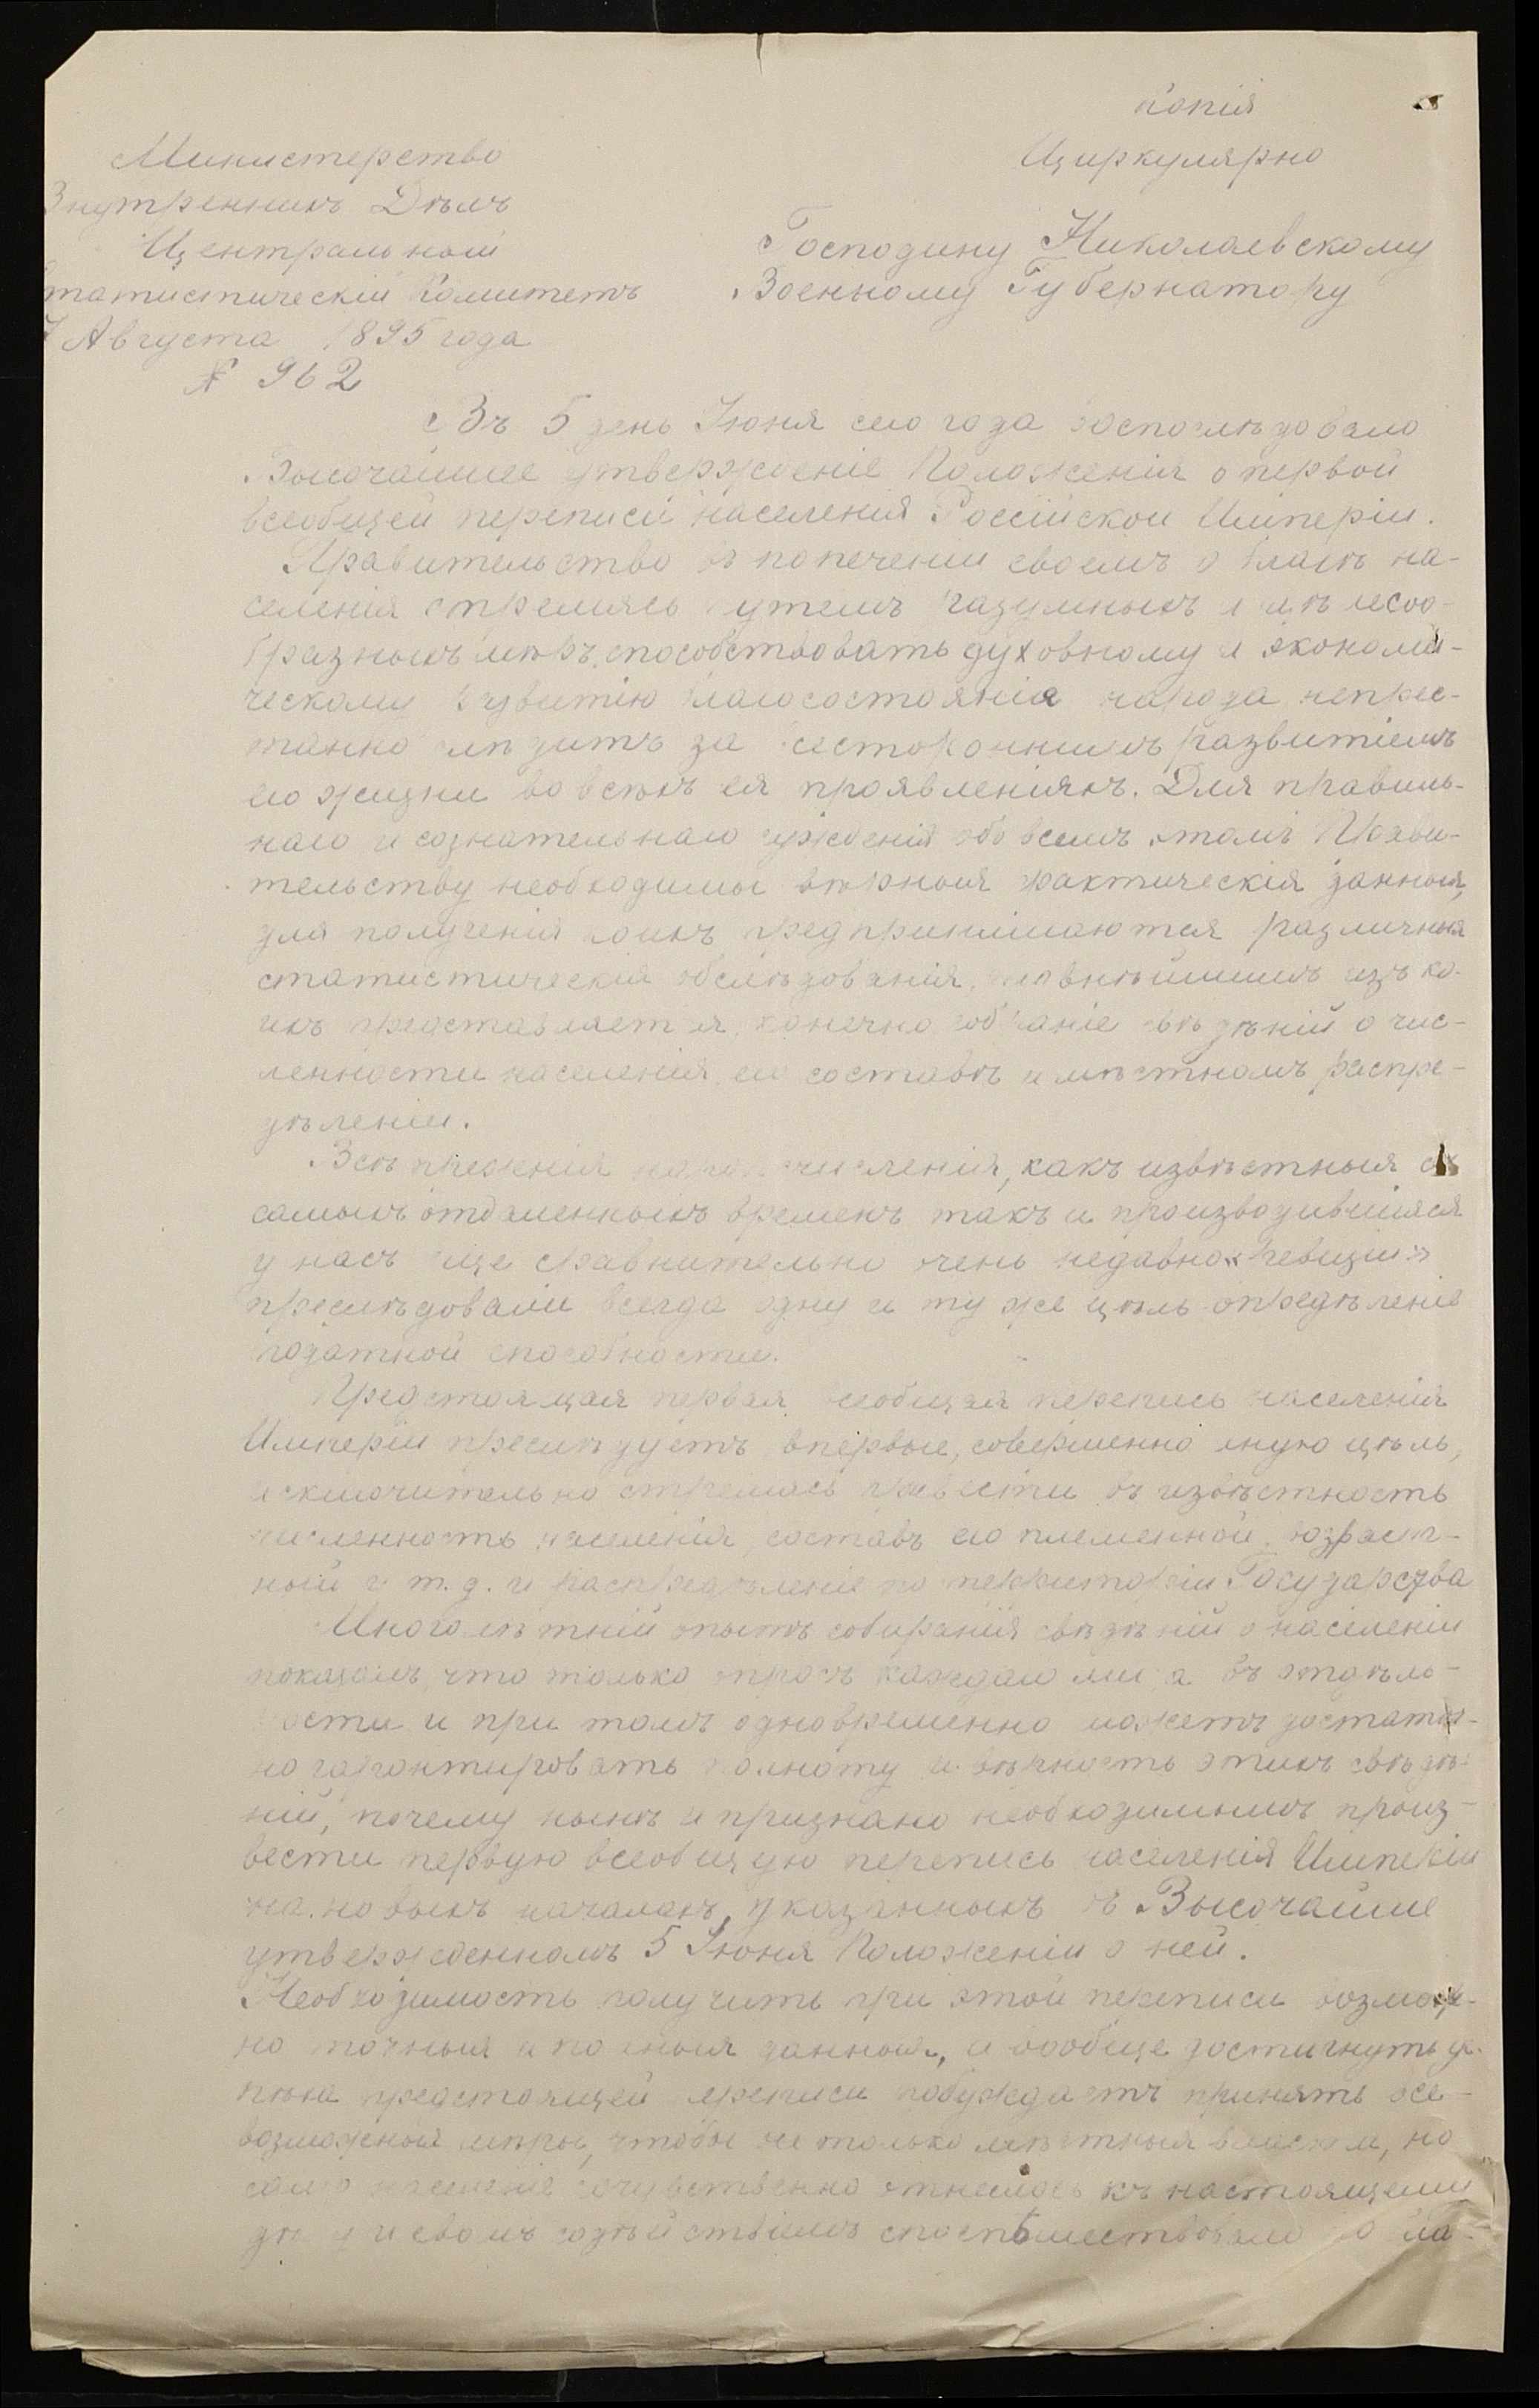 Копія
Циркулярно
Министерство
Внутреннихъ Дѣлъ
Центральный
татистическій Комитетъ
7 Августа 1895 года
№ 962
Господину Николаевскому
Военному Губернатору
Въ 5 день Іюня сего года воспослѣдовало
Высочайшее утвержденіе Положенія о первой
всеобщей переписи населенія Россійской Имперіи.
Правительство въ попеченіи своемъ о благѣ на-
селенія стремясь путемъ разумныхъ и цѣлесоо-
бразныхъ мѣръ, способствовать духовному и экономи-
ческому развитію благосостоянія народа непрес-
танно слѣдитъ за всестороннимъ развитіемъ
его жизни во всѣхъ ея проявленіяхъ. Для правиль-
наго и сознательнаго сужденія обо всемъ этомъ Прави-
тельству необходимы вѣрныя фактическія данныя,
для полученія коихъ предпринимаются различныя
статистическія обслѣдованія, главнѣйшимъ изъ ко-
ихъ представляется конечно собраніе свѣдѣній о чис-
ленности населенія, его составѣ и мѣстномъ распре-
дѣленіи.
Всѣ прежнія народосчисленія, какъ извѣстныя съ
самыхъ отдаленныхъ временъ такъ и производившіяся
у насъ еще сравнительно очень недавно „ревизіи"
преслѣдовали всегда одну и ту же цѣль опредѣленіе
податной способности.
Предстоящая первая всеобщая перепись населенія
Имперіи преслѣдуетъ впервые, совершенно иную цѣль,
исключительно стремясь привести въ извѣстность
численность населенія, составъ его племенной, возраст-
ный и т. д. и распредѣленіе по территоріи Государства
Многолѣтній опытъ собиранія свѣдѣній о населеніи
показалъ, что только опросъ каждаго лица въ отдѣль-
ности и при томъ одновременно можетъ достаточ-
но гарантировать полноту и вѣрность этихъ свѣдѣ-
ній, почему нынѣ и признано необходимымъ произ-
вести первую всеобщую перепись населенія Имперіи
на новыхъ началахъ, указанныхъ въ Высочайше
утвержденномъ 5 Іюня Положеніи о ней.
Необходимость получить при этой переписи возмож-
но точныя и полныя данныя, и вообще достигнуть ус-
пѣха предстоящей переписи побуждаетъ принять все-
возможныя мѣры, чтобы не только мѣстныя власти, но
само населеніе сочувственно отнеслось къ настоящему
дѣлу и своимъ содѣйствіемъ споспѣшествовало